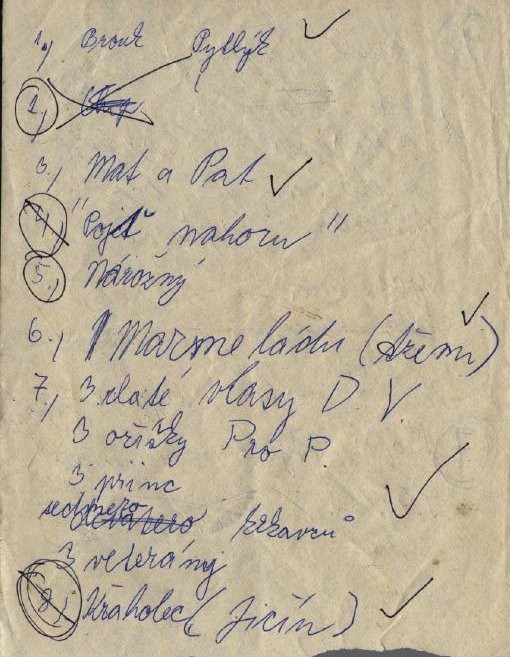 1,) Brouk Pytlýk
2,)
3,) Mat a Pat
4,) "Pojď nahoru"
5,) Nárožný
6,) Marmeládu (třemi)
7,) 3 zlaté vlasy D V.
3 oříšky Pro P.
3 princ
sedmero krkavců
3 veterány
8,) Kraholec (Jičín)